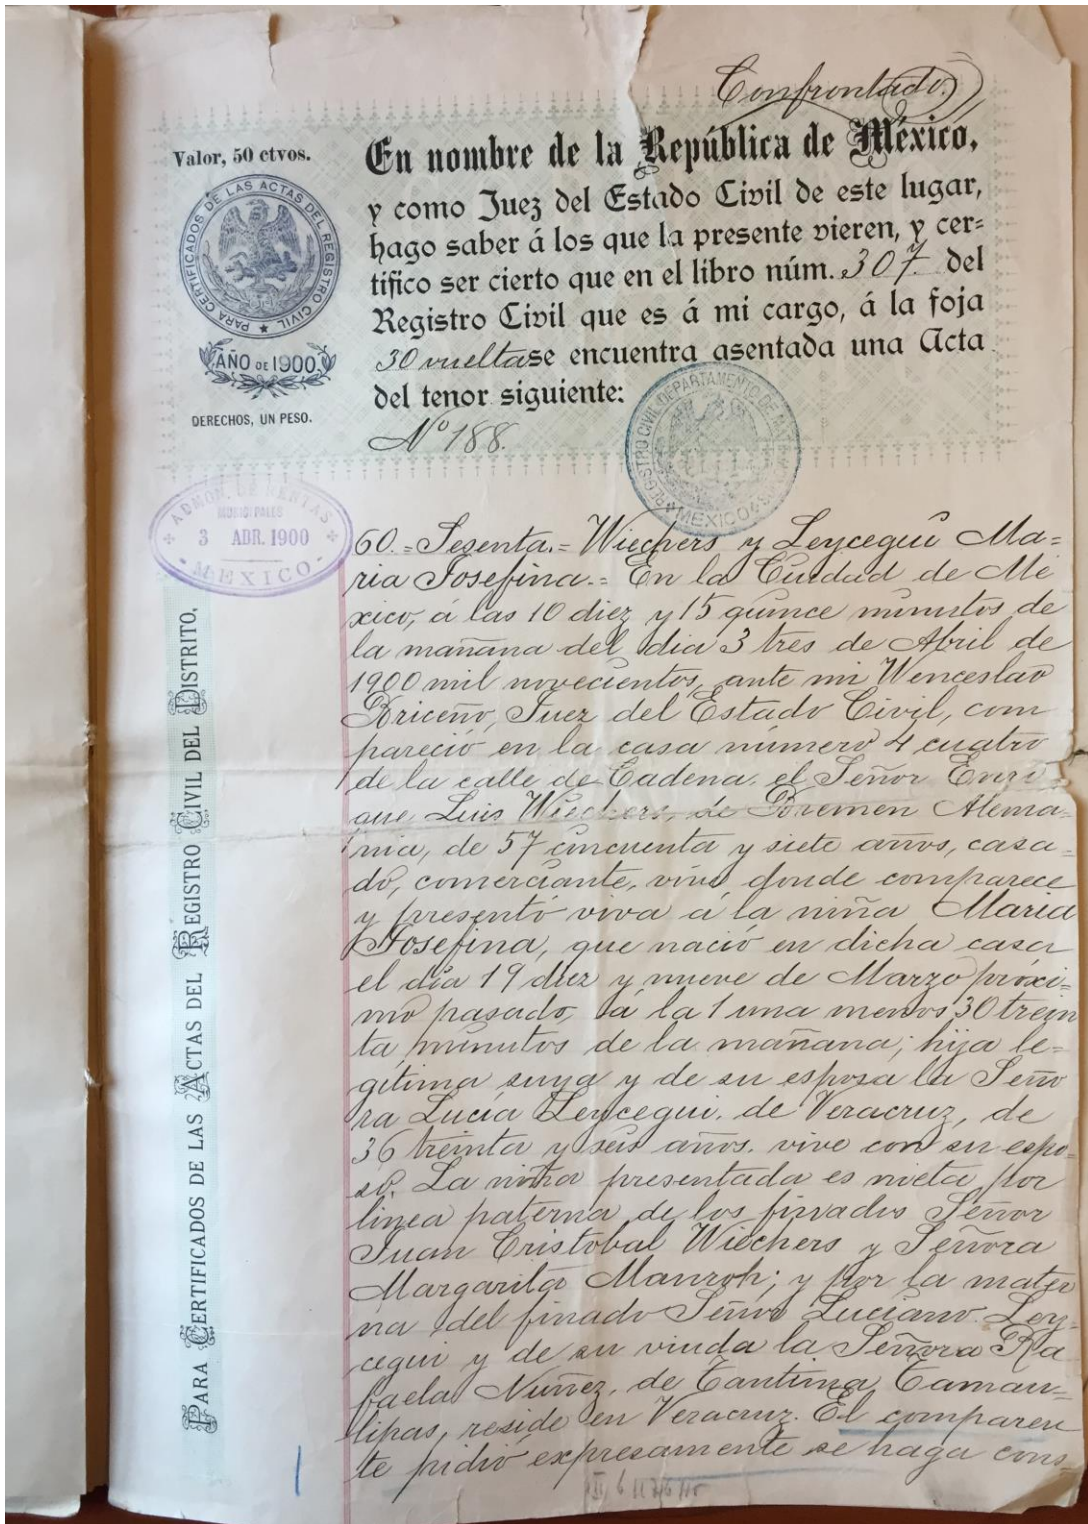 Confrontado.
Valor, 50 ctvos.
PARA CERTIFICADOS DE LAS ACTAS DEL REGISTRO CIVIL
AÑO DE 1900
DERECHOS, UN PESO.
En nombre de la República de México,
y como Juez del Estado Civil de este lugar,
hago saber á los que la presente vieren, y cer=
tifico ser cierto que en el libro núm. 307. del
Registro Civil que es á mi cargo, á la foja
30 vuelta se encuentra asentada una Acta
del tenor siguiente:
Nº 188.
REGISTRO CIVIL DEPARTAMENTO DE
MEXICO
ADMON. DE RENTAS
MUNICIPALES
3 ABR. 1900
MEXICO
PARA CERTIFICADOS DE LAS ACTAS DEL REGISTRO CIVIL DEL DISTRITO.
60.=Sesenta.=Wiechers y Leycegui Ma=
ria Josefina.=En la Ciudad de Mé
xico, á las 10 diez y 15 quince minutos de
la mañana del dia 3 tres de Abril de
1900 mil novecientos, ante mi Wenceslao
Briceño, Juez del Estado Civil, com
pareció en la casa número 4 cuatro
de la calle de Cadena, el Señor Enri
que Luis Wiechers, de Bremen Alema=
nia, de 57 cincuenta y siete años, casa=
do, comerciante, vive donde comparece
y presentó viva á la niña Maria
Josefina, que nació en dicha casa
el dia 19 diez y nueve de Marzo próxi=
mo pasado, á la 1 una menos 30 trein
ta minutos de la mañana; hija le=
gitima suya y de su esposa la Seño
ra Lucía Leycegui, de Veracruz, de
36 treinta y seis años, vive con su espo=
so. La niña presentada es nieta por
linea paterna de los finados Señor
Juan Cristobal Wiechers y Señora
Margarita Manroh; y por la mater
na del finado Señor Luciano Ley=
cegui y de su viuda la Señora Ra
faela Nuñez, de Tantima Tamau=
lipas, reside en Veracruz. El comparen
te pidió expresamente se haga cons